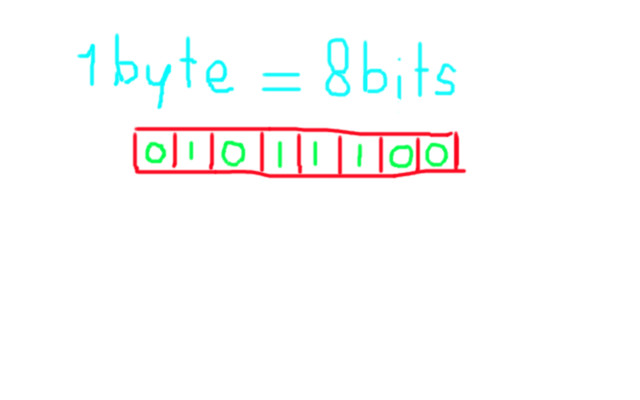 1byte = 8bits
0 1 0 1 1 1 0 0